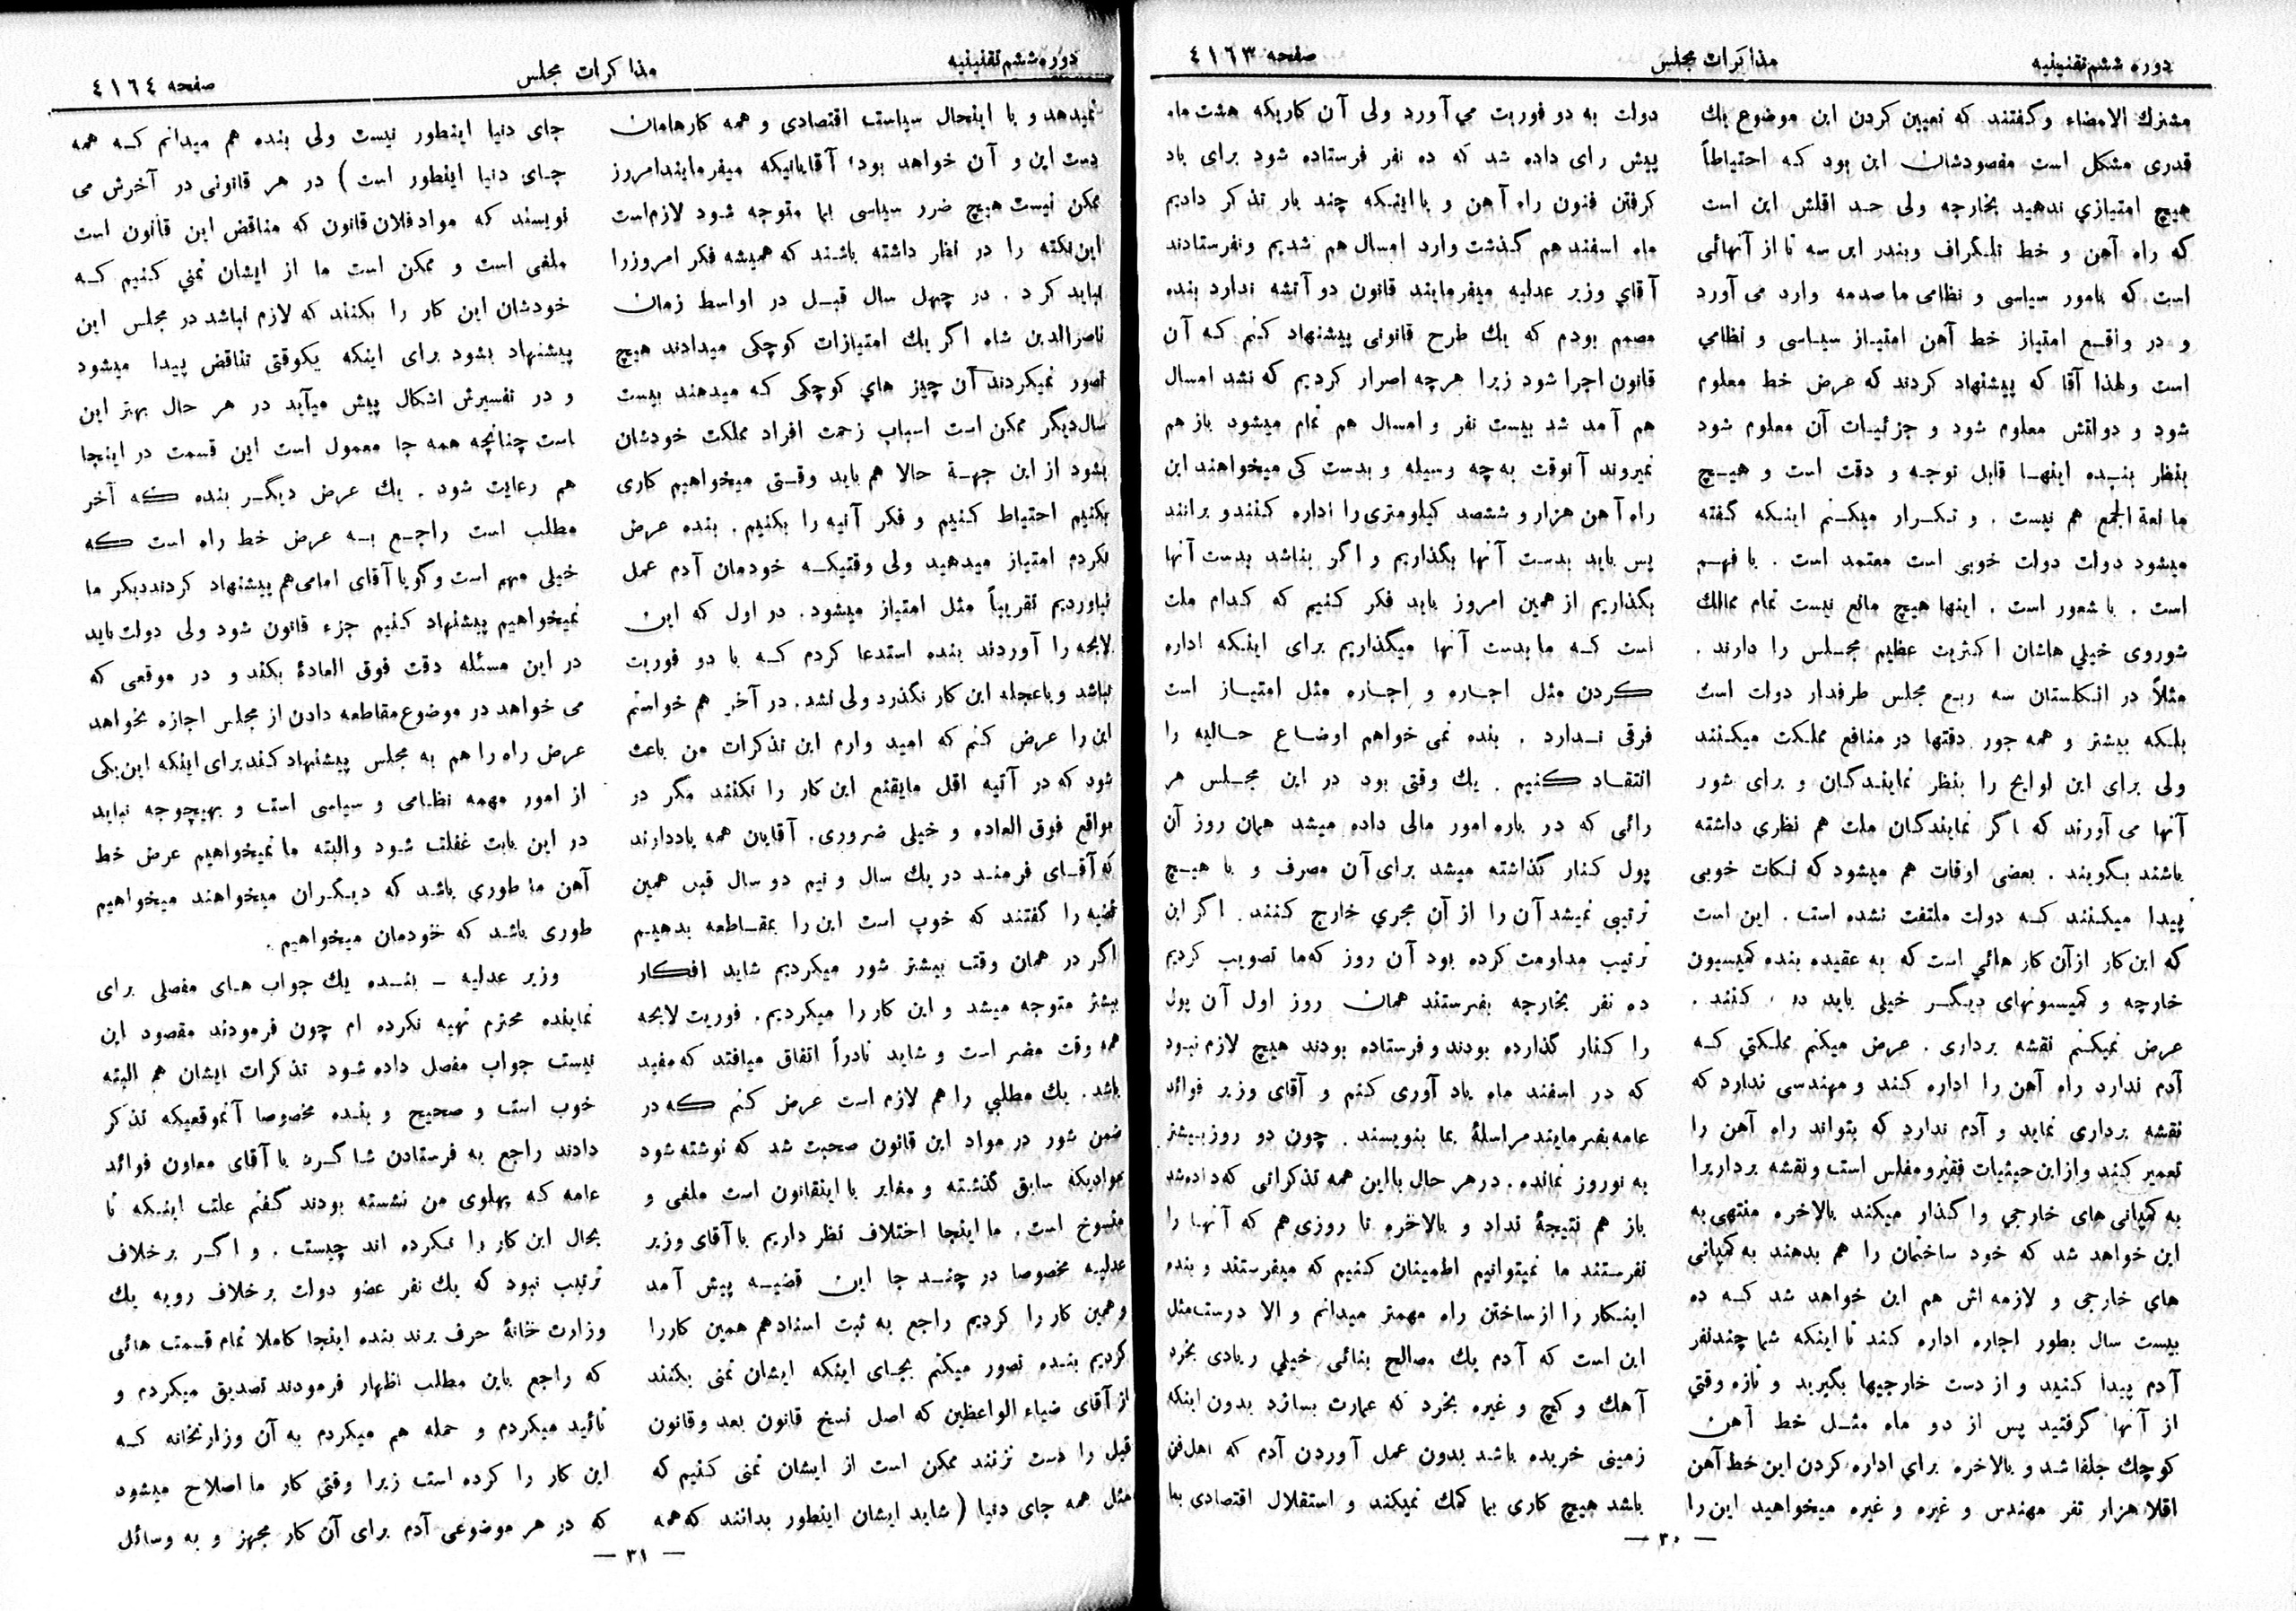 دوره ششم تقنینیه
مذاکرات مجلس
صفحه ٤١٦٣
مشترك الامضاء و گفتند که تعیین کردن این موضوع یك
قدری مشکل است مقصودشان این بود که احتیاطاً
هیچ امتیازي ندهید بخارجه ولی حد اقلش این است
که راه آهن و خط تلگراف وبندر این سه تا از آنهائی
است که بامور سیاسی و نظامی ما صدمه وارد می آورد
و در واقع امتیاز خط آهن امتیاز سیاسی و نظامي
است ولهذا آقا که پیشنهاد کردند که عرض خط معلوم
شود و دولتش معلوم شود و جزئیات آن معلوم شود
بنظر بنده اینها قابل توجه و دقت است و هیچ
مانعة الجمع هم نیست . و تکرار میکنم اینکه گفته
میشود دولت دولت خوبی است معتمد است . با فهم
است . با شعور است . اینها هیچ مانع نیست تمام ممالك
شوروی خیلي هاشان اکثریت عظیم مجلس را دارند .
مثلاً در انگلستان سه ربع مجلس طرفدار دولت است
بلکه بیشتر و همه جور دقتها در منافع مملکت میکنند
ولی برای این لوایح را بنظر نمایندگان و برای شور
آنها می آورند که اگر نمایندگان ملت هم نظری داشته
باشند بگویند . بعضی اوقات هم میشود که نکات خوبی
پیدا میکنند که دولت ملتفت نشده است . این است
که این کار ازآن کار هائي است که به عقیده بنده کمیسیون
خارجه و کمیسونهای دیگر خیلی باید کنند .
عرض نمیکنم نقشه برداری . عرض میکنم مملکتي که
آدم ندارد راه آهن را اداره کند و مهندسی ندارد که
نقشه برداری نماید و آدم ندارد که بتواند راه آهن را
تعمیر کند وازاین حیثیات فقیر و مفلس است و نقشه بردار یرا
به کمپانی های خارجي واگذار میکند بالاخره منتهی به
این خواهد شد که خود ساختمان را هم بدهند به کمپانی
هاي خارجی و لازمه اش هم این خواهد شد که ده
بیست سال بطور اجاره اداره کند تا اینکه شما چندنفر
آدم پیدا کنید و از دست خارجیها بگیرید و تازه وقتي
از آنها گرفتید پس از دو ماه مثل خط آهن
کوچك جلفا شد و بالاخره براي اداره کردن این خط آهن
اقلا هزار نفر مهندس و غیره و غیره میخواهید این را
دولت به دو فوریت مي آورد ولی آن کاریکه هشت ماه
پیش رای داده شد که ده نفر فرستاده شود برای یاد
گرفتن فنون راه آهن و با اینکه چند بار تذکر دادیم
ماه اسفند هم گذشت وارد امسال هم شدیم ونفرستادند
آقاي وزیر عدلیه میفرمایند قانون دو آتشه ندارد بنده
مصمم بودم که یك طرح قانونی پیشنهاد کنم که آن
قانون اجرا شود زیرا هرچه اصرار کردیم که نشد امسال
هم آمد شد بیست نفر و امسال هم تمام میشود باز هم
نمیروند آنوقت به چه وسیله و بدست کی میخواهند این
راه آهن هزار و ششصد کیلومتری را اداره کنند و برانند
پس باید بدست آنها بگذاریم و اگر بناشد بدست آنها
بگذاریم از همین امروز باید فکر کنیم که کدام ملت
است که ما بدست آنها میگذاریم برای اینکه اداره
کردن مثل اجاره و اجاره مثل امتیاز است
فرقی ندارد . بنده نمی خواهم اوضاع حالیه را
انتقاد کنیم . یك وقتی بود در این مجلس هر
رائی که در باره امور مالی داده میشد همان روز آن
پول کنار گذاشته میشد برای آن مصرف و با هیچ
ترتیبی نمیشد آن را از آن مجري خارج کنند . اگر این
ترتیب مداومت کرده بود آن روز که ما تصویب کردیم
ده نفر بخارجه بفرستند همان روز اول آن پول
را کنار گذارده بودند و فرستاده بودند هیچ لازم نبود
که در اسفند ماه یاد آوری کنم و آقای وزیر فوائد
عامه بفرمایند مراسلهٔ بما بنویسند . چون دو روز بیشتر
به نوروز نمانده . درهر حال بااین همه تذکراتی که داده شد
باز هم نتیجهٔ نداد و بالاخره تا روزی هم که آنها را
نفرستند ما نمیتوانیم اطمینان کنیم که میفرستند و بنده
اینکار را از ساختن راه مهمتر میدانم و الا درست مثل
این است که آدم یك مصالح بنائی خیلي زیادی بخرد
آهك و گچ و غیره بخرد که عمارت بسازد بدون اینکه
زمینی خریده باشد بدون عمل آوردن آدم که اهل فن
باشد هیچ کاری بما کمك نمیکند و استقلال اقتصادی بما
— ٣٠ —
دوره ششم تقنینیه
مذاکرات مجلس
صفحه ٤١٦٤
نمیدهد و با اینحال سیاست اقتصادی و همه کارهامان
دست این و آن خواهد بود؛ آقایانیکه میفرمایند امروز
ممکن نیست هیچ ضرر سیاسی بما متوجه شود لازم است
این نکته را در نظر داشته باشند که همیشه فکر امروز را
نباید کرد . در چهل سال قبل در اواسط زمان
ناصرالدین شاه اگر یك امتیازات کوچکی میدادند هیچ
تصور نمیکردند آن چیز هاي کوچکی که میدهند بیست
سال دیگر ممکن است اسباب زحمت افراد مملکت خودشان
بشود از این جهة حالا هم باید وقتی میخواهیم کاری
بکنیم احتیاط کنیم و فکر آتیه را بکنیم . بنده عرض
نکردم امتیاز میدهید ولی وقتیکه خودمان آدم عمل
نیاوردیم تقریباً مثل امتیاز میشود . در اول که این
لایحه را آوردند بنده استدعا کردم که با دو فوریت
نباشد و باعجله این کار نگذرد ولی نشد . در آخر هم خواستم
این را عرض کنم که امید وارم این تذکرات من باعث
شود که در آتیه اقل مایقنع این کار را نکنند مگر در
مواقع فوق العاده و خیلی ضروری . آقایان همه یاددارند
که آقای فرمند در یك سال و نیم دو سال قبل همین
قضیه را گفتند که خوب است این را بمقاطعه بدهیم
اگر در همان وقت بیشتر شور میکردیم شاید افکار
بیشتر متوجه میشد و این کار را میکردیم . فوریت لایحه
همه وقت مضر است و شاید نادراً اتفاق میافتد که مفید
باشد . یك مطلبي را هم لازم است عرض کنم که در
ضمن شور در مواد این قانون صحبت شد که نوشته شود
موادیکه سابق گذشته و مغایر با اینقانون است ملغی و
منسوخ است . ما اینجا اختلاف نظر داریم با آقای وزیر
عدلیه مخصوصا در چند جا این قضیه پیش آمد
و همین کار را کردیم راجع به ثبت اسنادهم همین کاررا
کردیم بنده تصور میکنم بجای اینکه ایشان تمنی بکنند
از آقای ضیاء الواعظین که اصل نسخ قانون بعد و قانون
قبل را دست نزنند ممکن است از ایشان تمنی کنیم که
مثل همه جای دنیا ( شاید ایشان اینطور بدانند که همه
جای دنیا اینطور نیست ولی بنده هم میدانم که همه
جای دنیا اینطور است ) در هر قانونی در آخرش می
نویسند که مواد فلان قانون که مناقض این قانون است
ملغی است و ممکن است ما از ایشان تمني کنیم که
خودشان این کار را بکنند که لازم نباشد در مجلس این
پیشنهاد بشود برای اینکه یکوقتی تناقض پیدا میشود
و در تفسیرش اشکال پیش میآید در هر حال بهتر این
است چنانچه همه جا معمول است این قسمت در اینجا
هم رعایت شود . یك عرض دیگر بنده که آخر
مطلب است راجع به عرض خط راه است که
خیلی مهم است وگویا آقای امامی هم پیشنهاد کردنددیگر ما
نمیخواهیم پیشنهاد کنیم جزء قانون شود ولی دولت باید
در این مسئله دقت فوق العادهٔ بکند و در موقعی که
می خواهد در موضوع مقاطعه دادن از مجلس اجازه بخواهد
عرض راه را هم به مجلس پیشنهاد کند برای اینکه این یکی
از امور مهمه نظامی و سیاسی است و بهیچوجه نباید
در این بابت غفلت شود والبته ما نمیخواهیم عرض خط
آهن ما طوري باشد که دیگران میخواهند میخواهیم
طوری باشد که خودمان میخواهیم .
وزیر عدلیه ـ بنده یك جواب های مفصلی برای
نماینده محترم تهیه نکرده ام چون فرمودند مقصود این
نیست جواب مفصل داده شود تذکرات ایشان هم البته
خوب است و صحیح و بنده مخصوصا آنموقعیکه تذکر
دادند راجع به فرستادن شاگرد با آقای معاون فوائد
عامه که پهلوی من نشسته بودند گفتم علت اینکه تا
بحال این کار را نکرده اند چیست . و اگر برخلاف
ترتیب نبود که یك نفر عضو دولت برخلاف رویه یك
وزارت خانهٔ حرف بزند بنده اینجا کاملا تمام قسمت هائی
که راجع باین مطلب اظهار فرمودند تصدیق میکردم و
تائید میکردم و حمله هم میکردم به آن وزارتخانه که
این کار را کرده است زیرا وقتي کار ما اصلاح میشود
که در هر موضوعی آدم برای آن کار مجهز و به وسائل
— ٣١ —